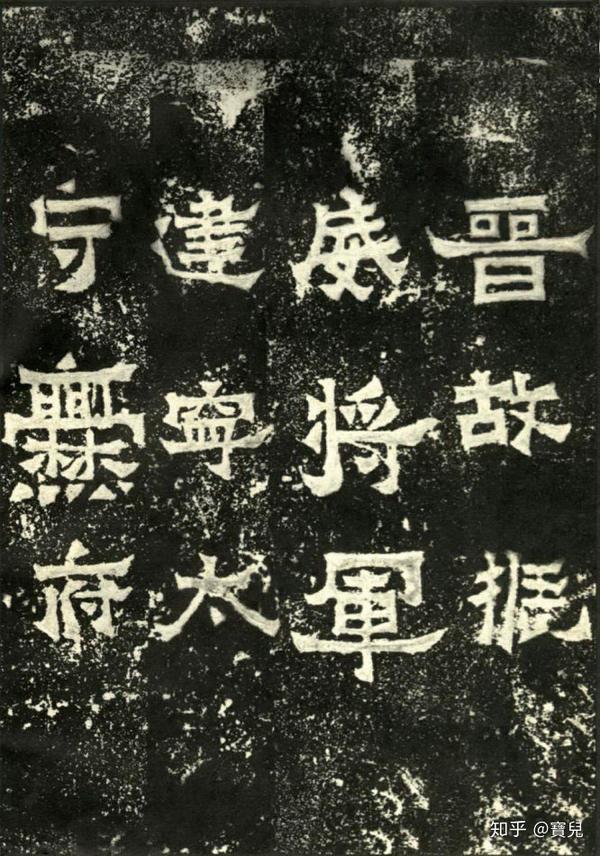 晉故振
威將軍
建寧太
守爨府
知乎 @寶兒